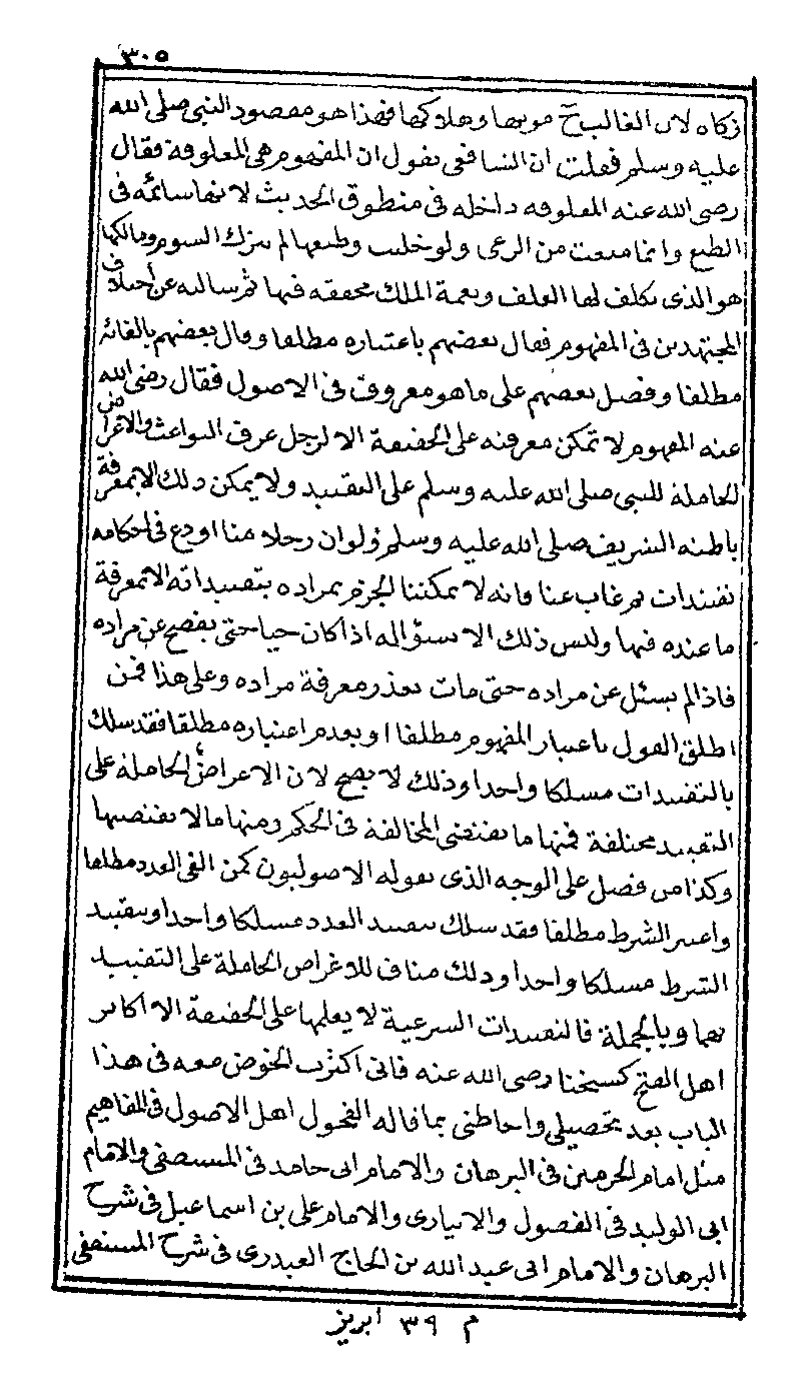 ٣٠٥
زكاه لان الغالب ح موتها وهلاكها فهذا هو مقصود النبي صلى الله
عليه وسلم فقلت ان الشافعى يقول ان المفهوم هى المعلوفة فقال
رضى الله عنه المعلوفه داخله فى منطوق الحديث لانها سائمه فى
الطبع وانما منعت من الرعى ولو خليت وطبعها لم تترك السوم ومالكها
هو الذى تكلف لها العلف ونعمة الملك محققه فيها ثم سالته عن اختلاف
المجتهدين فى المفهوم فقال بعضهم باعتباره مطلقا وقال بعضهم بالغائه
مطلقا وفصل بعضهم على ما هو معروف فى الاصول فقال رضى الله
عنه المفهوم لا تمكن معرفته على الحقيقة الا لرجل عرف البواعث والاغراض
الحاملة للنبى صلى الله عليه وسلم على التقييد ولا يمكن ذلك الا بمعرفة
باطنه الشريف صلى الله عليه وسلم ولو ان رجلا منا اودع فى احكامه
تقييدات ثم غاب عنا فانه لا يمكننا الجزم بمراده بتقييداته الا بمعرفة
ما عنده فيها وليس ذلك الا بسؤاله اذا كان حيا حتى يفصح عن مراده
فاذا لم يسئل عن مراده حتى مات تعذر معرفة مراده وعلى هذا فمن
اطلق القول باعتبار المفهوم مطلقا او بعدم اعتباره مطلقا فقد سلك
بالتقييدات مسلكا واحدا وذلك لا يصح لان الاعراض الحاملة على
التقييد مختلفة فمنها ما يقتضى المخالفة فى الحكم ومنها ما لا يقتضيها
وكذا من فصل على الوجه الذى يقوله الاصوليون كمن الغى العدد مطلقا
واعتبر الشرط مطلقا فقد سلك بتقييد العدد مسلكا واحدا وبتقييد
الشرط مسلكا واحدا وذلك مناف للاغراض الحاملة على التقييد
بهما وبالجملة فالتقييدات الشرعية لا يعلمها على الحقيقة الا اكابر
اهل الفتح كشيخنا رضى الله عنه فانى اكثرت الخوض معه فى هذا
الباب بعد تحصيلى واحاطتى بما قاله الفحول اهل الاصول فى المفاهيم
مثل امام الحرمين فى البرهان والامام ابى حامد فى المستصفى والامام
ابى الوليد فى الفصول والابيارى والامام على بن اسماعيل فى شرح
البرهان والامام ابى عبد الله بن الحاج العبدرى فى شرح المستصفى
م ٣٩ ابريز